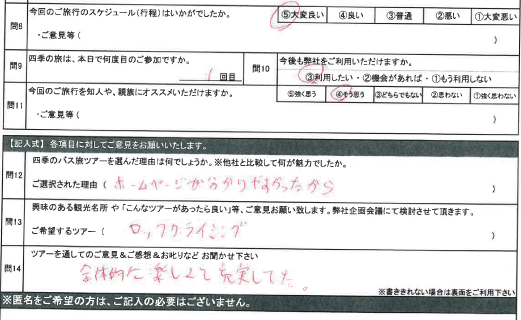 問8 今回のご旅行のスケジュール(行程)はいかがでしたか。 ⑤大変良い ④良い ③普通 ②悪い ①大変悪い
・ご意見等( )
問9 四季の旅は、本日で何度目のご参加ですか。
1 回目
問10 今後も弊社をご利用いただけますか。
③利用したい・②機会があれば・①もう利用しない
問11 今回のご旅行を知人や、親族にオススメいただけますか。 ⑤強く思う ④そう思う ③どちらでもない ②思わない ①強く思わない
・ご意見等( )
【記入式】各項目に対してご意見をお願いいたします。
問12 四季のバス旅ツアーを選んだ理由は何でしょうか。※他社と比較して何が魅力でしたか。
ご選択された理由( ホームページが分かりやすかったから )
問13 興味のある観光名所 や「こんなツアーがあったら良い」等、ご意見お願い致します。弊社企画会議にて検討させて頂きます。
ご希望するツアー( ロッククライミング )
問14 ツアーを通してのご意見&ご感想&お叱りなど お聞かせ下さい
全体的に楽しくて充実してた。
※書ききれない場合は裏面をご利用下さい
※匿名をご希望の方は、ご記入の必要はございません。